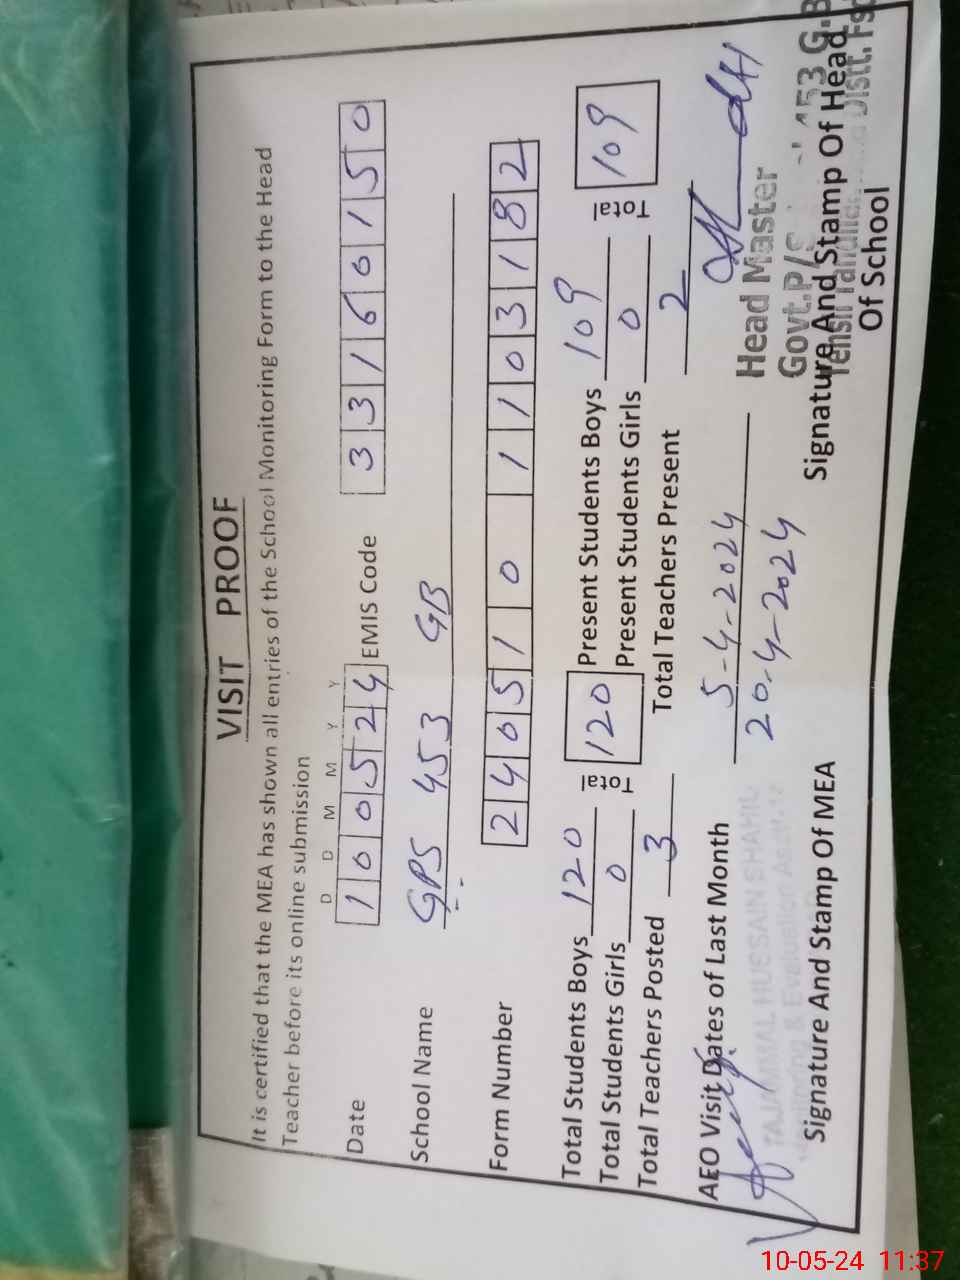 VISIT PROOF
It is certified that the MEA has shown all entries of the School Monitoring Form to the Head
Teacher before its online submission
D D M M Y Y
Date 1 0 0 5 2 4 EMIS Code 3 3 1 6 0 1 5 0
School Name GPS 453 GB
Form Number 2 4 0 5 1 0 1 1 0 3 1 8 2
Total Students Boys 120 Total 120 Present Students Boys 109 Total 109
Total Students Girls 0 Present Students Girls 0
Total Teachers Posted 3 Total Teachers Present 2
AEO Visit Dates of Last Month 5-4-2024
20-4-2024
TAJAMMAL HUSSAIN SHAHID
Monitoring & Evaluation Asstt.
Signature And Stamp Of MEA
Head Master
Govt.P/S 453 G.B
Tehsil Distt. Fsd
Signature And Stamp Of Head
Of School
10-05-24 11:37